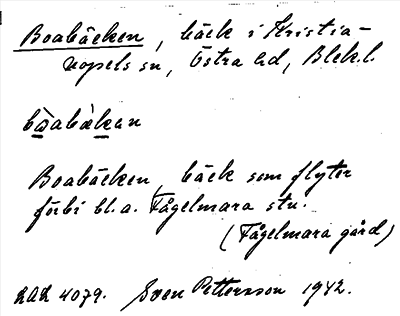 Boabäcken, bäck i Kristia-
nopels sn, Östra hd, Blek.l.
Boabäcken, bäck som flyter
förbi bl.a. Fågelmara stn.
(Fågelmara gård)
LAL 4079. Sven Pettersson 1942.